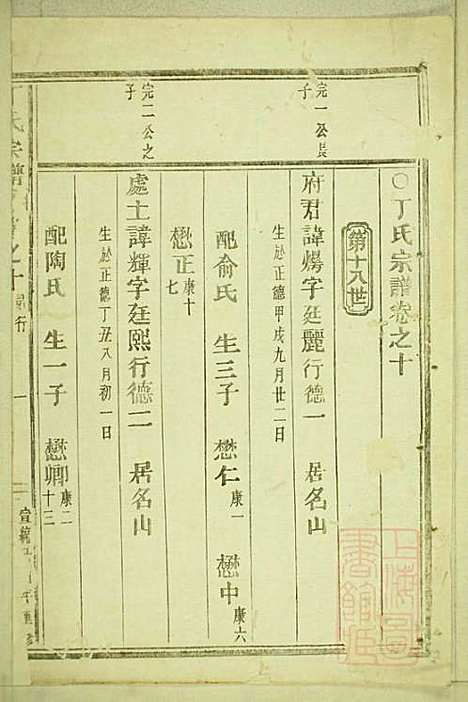 ○丁氏宗譜卷之十
第十八世
完一公長子
府君諱煬字廷麗行德一　居名山
生於正德甲戌九月廿二日
配俞氏　生三子　懋仁康一　懋中康六
懋正康十七
完二公之子
處士諱輝字廷熙行德二　居名山
生於正德丁丑八月初一日
配陶氏　生一子　懋卿康二十三
丁氏宗譜卷之十　行　一　宣統
上海圖書館藏